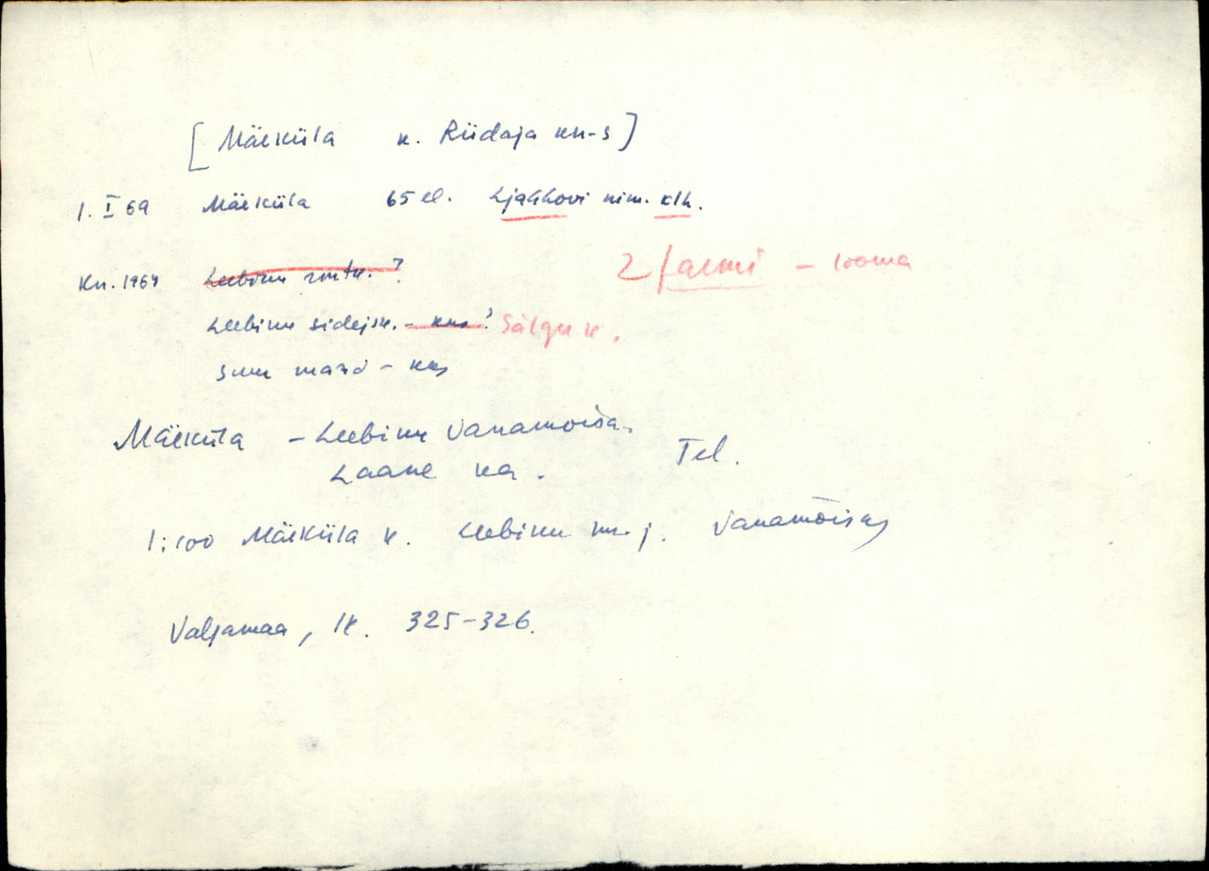 [Mäeküla k. Riidaja kn-s]
1. I 69 Mäeküla 65 el. Ljahhovi nim. klh.
Kn. 1964 Leebiku rmtk.?
2 farmi - looma
Leebiku sidejsk. - Sälgu k.
Suur mazo -
Mäeküla - Leebiku Vanamõisa.
Laane ka.
Tel.
1:100 Mäeküla k. Leebiku m. j. Vanamõisas
Valgamaa, lk. 325-326.